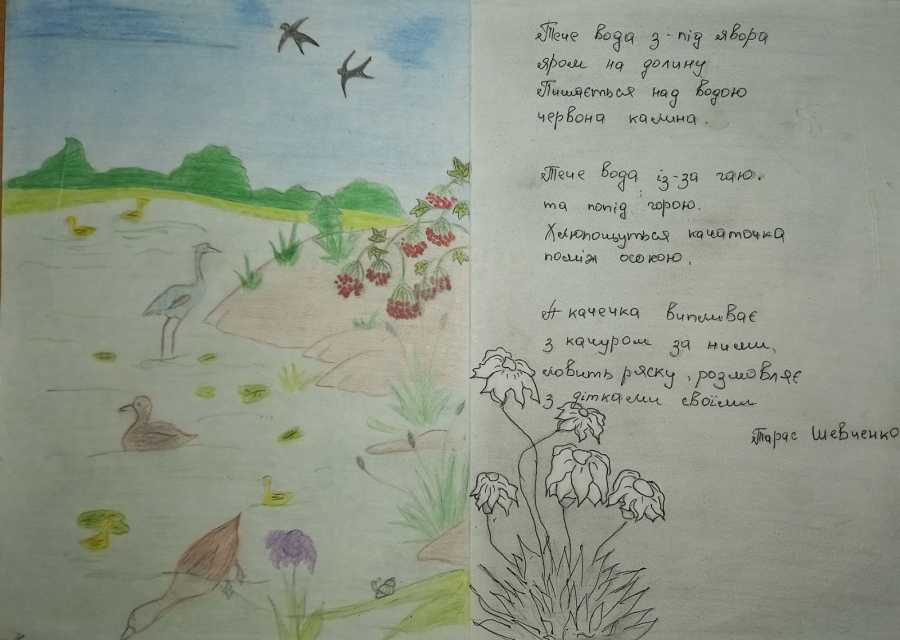 Тече вода з-під явора
яром на долину
Пишається над водою
червона калина.
Тече вода із-за гаю.
та попід горою.
Хлюпощуться качаточка
поміж осокою.
А качечка випливає
з качуром за ними,
ловить ряску, розмовляє
з дітками своїми
Тарас Шевченко